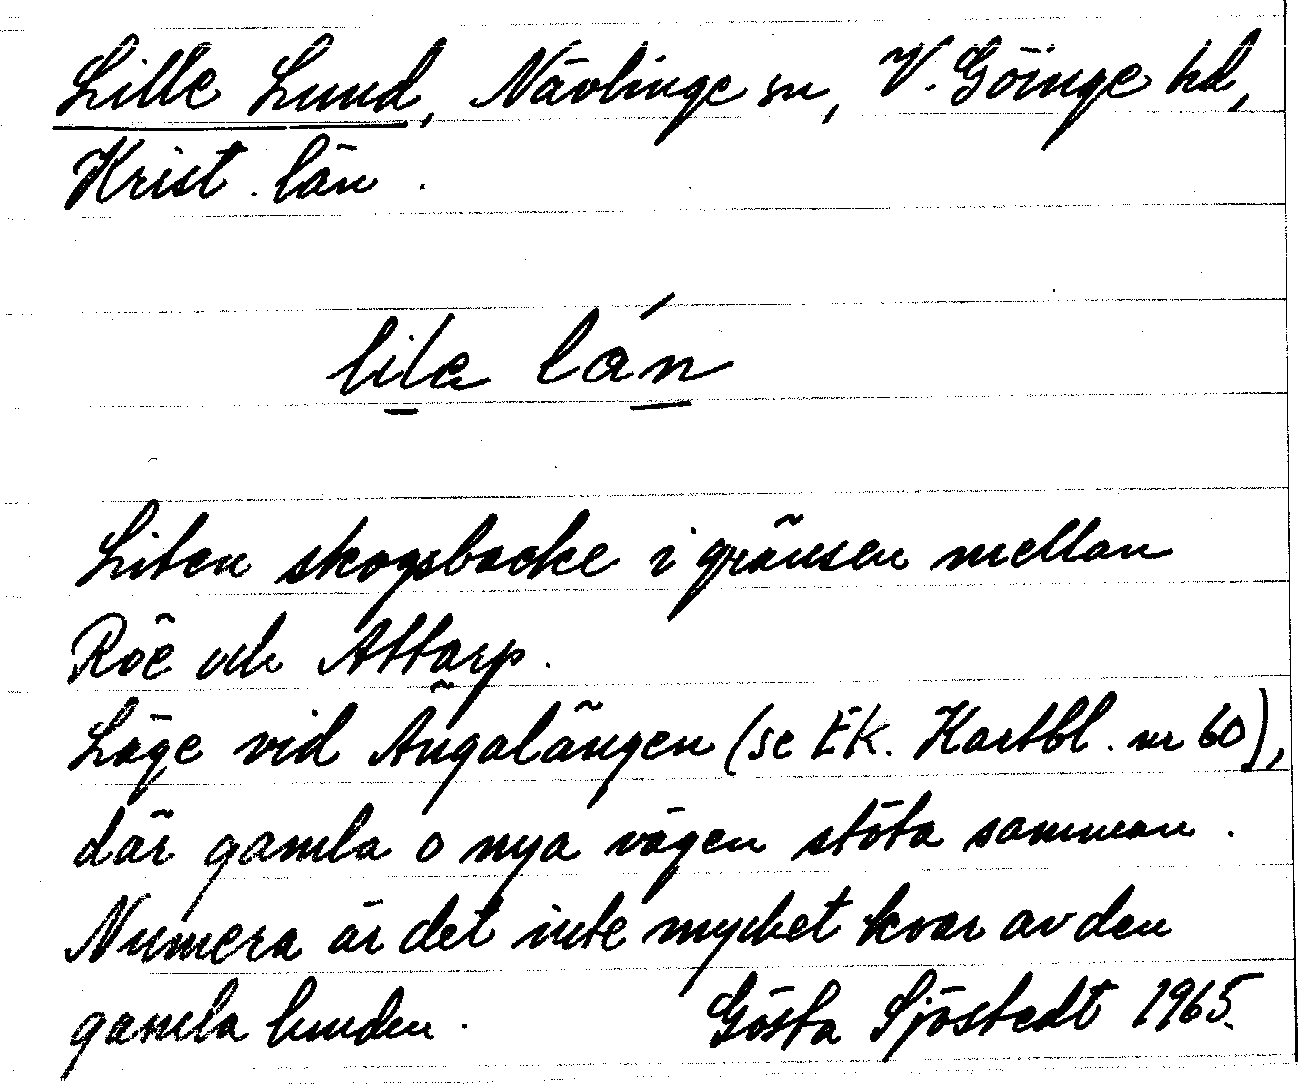 Lille Lund, Nävlinge sn, V. Göinge hd,
Krist. län.
lila lán
Liten skogsbacke i gränsen mellan
Röe och Attarp.
Läge vid Ängalängen (se Ek. Kartbl. nr 60),
där gamla o nya vägen stöta samman.
Numera är det inte mycket kvar av den
gamla lunden. Gösta Sjöstedt 1965.